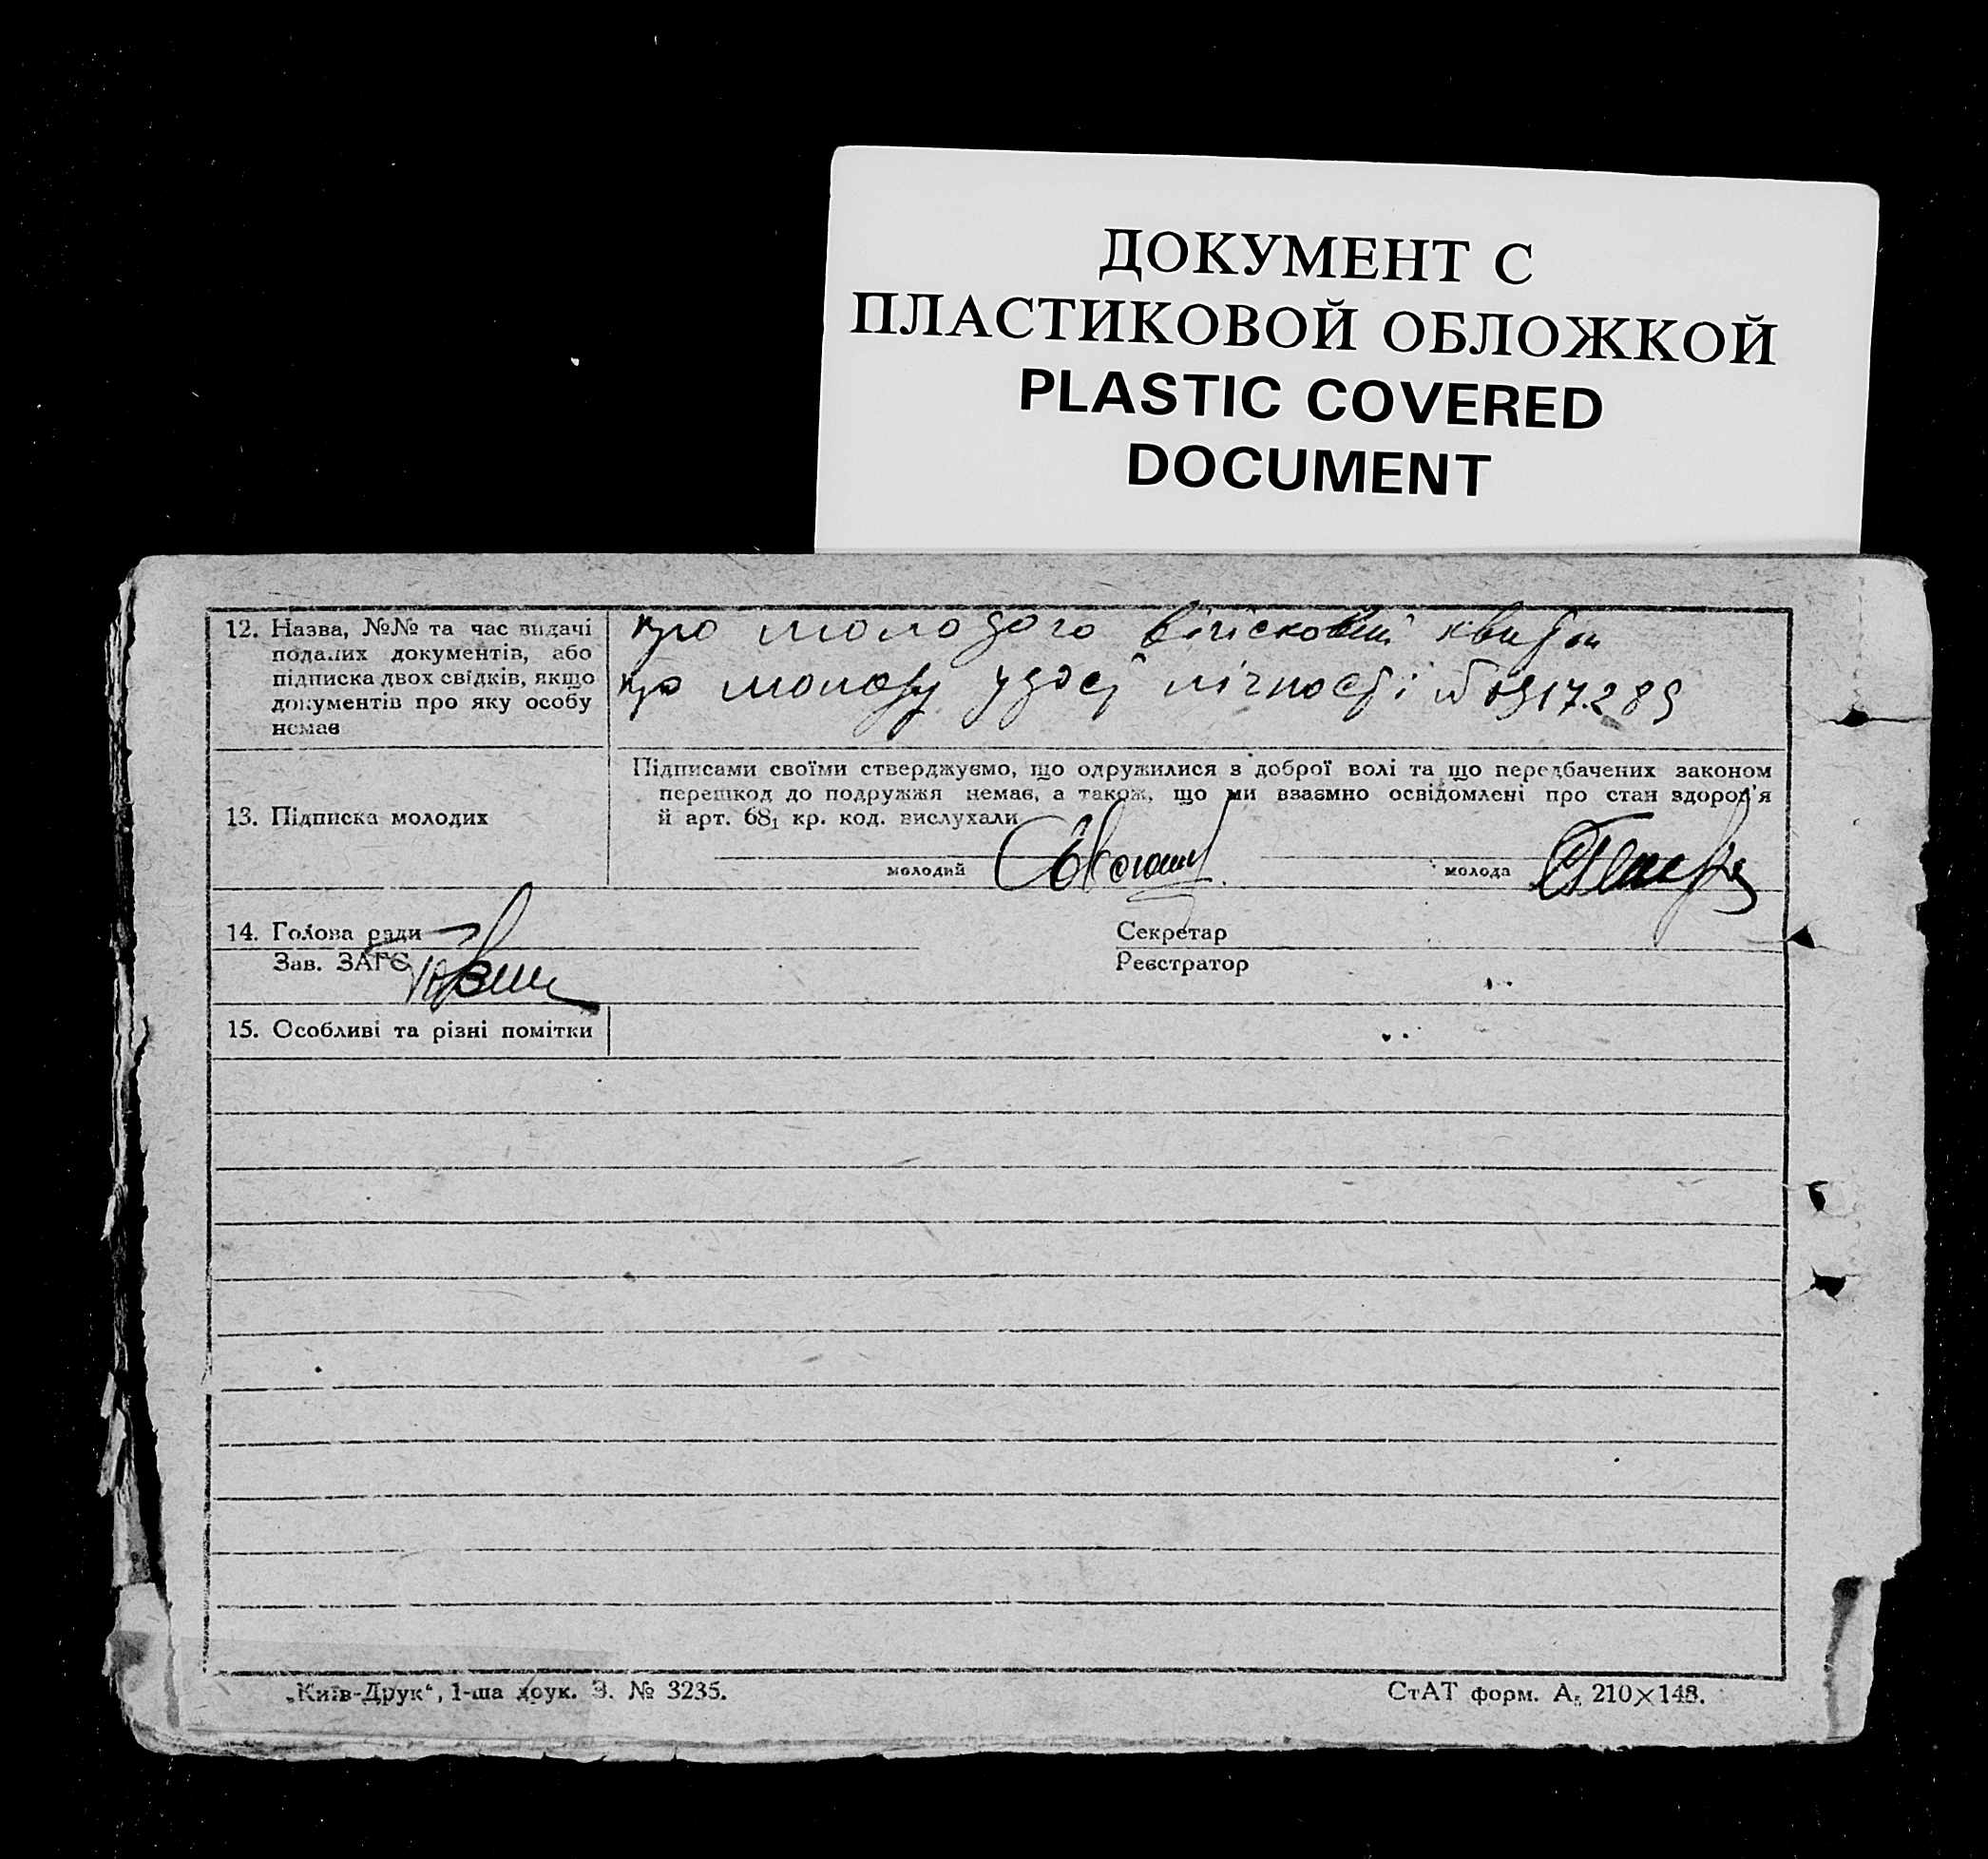 ДОКУМЕНТ С
ПЛАСТИКОВОЙ ОБЛОЖКОЙ
PLASTIC COVERED
DOCUMENT
12. Назва, №№ та час видачі
поданих документів, або
підписка двох свідків, якщо
документів про яку особу
немає
про молодого військовий квиток
про молоду удост лічності №
13. Підписка молодих
Підписами своїми стверджуємо, що одружилися з доброї волі та що передбачених законом
перешкод до подружжя немає, а також, що ми взаємно освідомлені про стан здоров'я
й арт. 68₁ кр. код. вислухали
молодий
молода
14. Голова ради
Секретар
Зав. ЗАГС
Реєстратор
15. Особливі та різні помітки
„Київ-Друк“, 1-ша друк. З. № 3235.
СтАТ форм. А₅ 210×148.